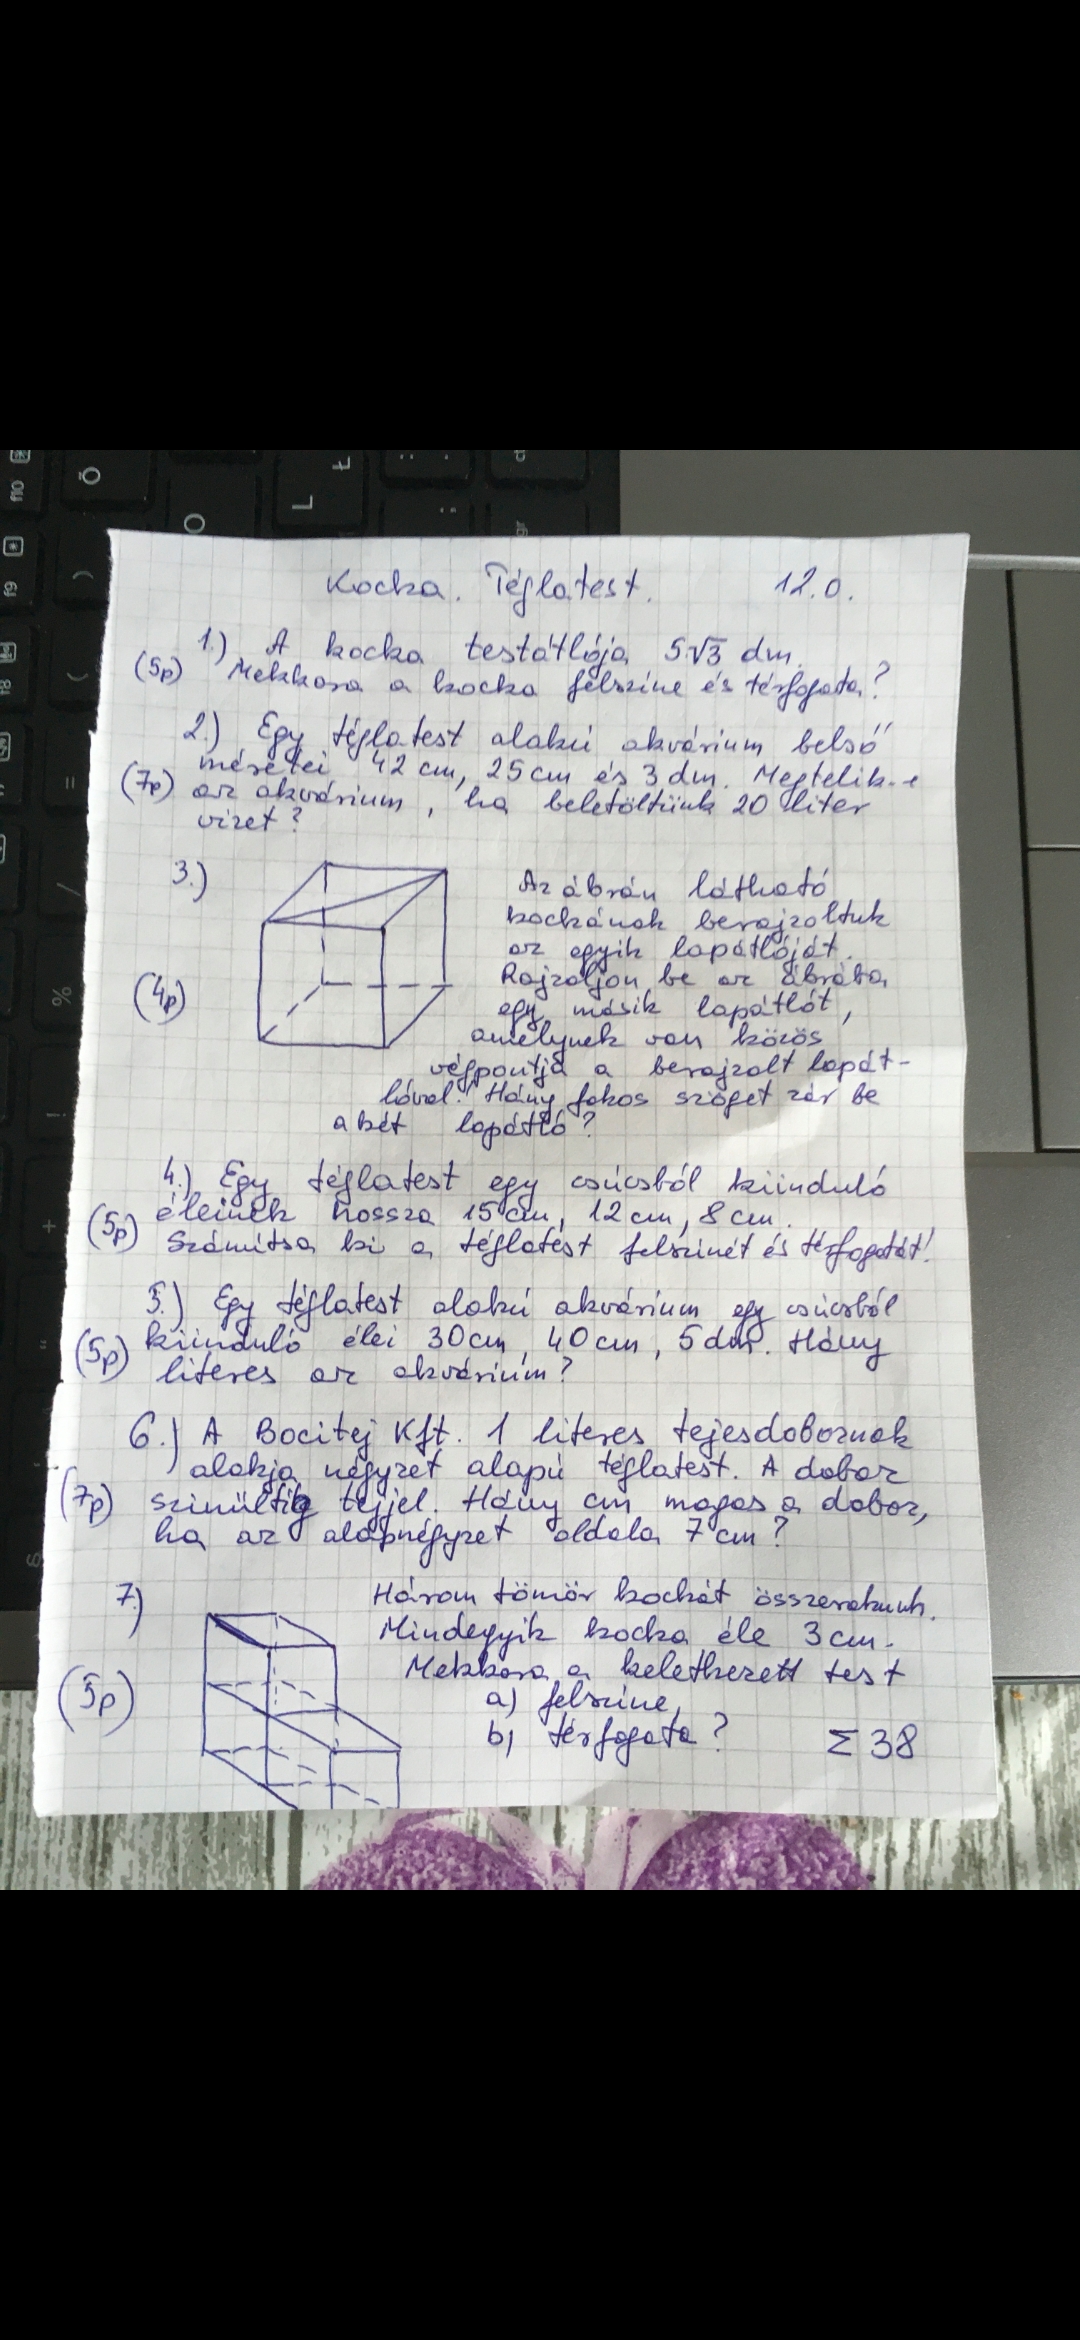 Kocka. Téglatest. 12.o.
1.) A kocka testátlója 5√3 dm.
(5p) Mekkora a kocka felszíne és térfogata?
2.) Egy téglatest alakú akvárium belső
méretei 42 cm, 25 cm és 3 dm. Megtelik-e
(7p) az akvárium, ha beletöltünk 20 liter
vizet?
3.) Az ábrán látható
kockának berajzoltuk
az egyik lapátlóját.
(4p) Rajzoljon be az ábrába
egy másik lapátlót,
amelynek van közös
végpontja a berajzolt lapát-
lóval! Hány fokos szöget zár be
a két lapátló?
4.) Egy téglatest egy csúcsból kiinduló
(5p) éleinek hossza 15 cm, 12 cm, 8 cm.
Számítsa ki a téglatest felszínét és térfogatát!
5.) Egy téglatest alakú akvárium egy csúcsból
(5p) kiinduló élei 30 cm, 40 cm, 5 dm. Hány
literes az akvárium?
6.) A Bocitej Kft. 1 literes tejesdoboznak
alakja négyzet alapú téglatest. A doboz
(7p) színültig tejjel. Hány cm magas a doboz,
ha az alapnégyzet oldala 7 cm?
7.) Három tömör kockát összerakunk.
Mindegyik kocka éle 3 cm.
(5p) Mekkora a keletkezett test
a) felszíne,
b) térfogata? Σ 38
f10
f9
f8
Ő
O
L
Ł
%
!
+
=
/